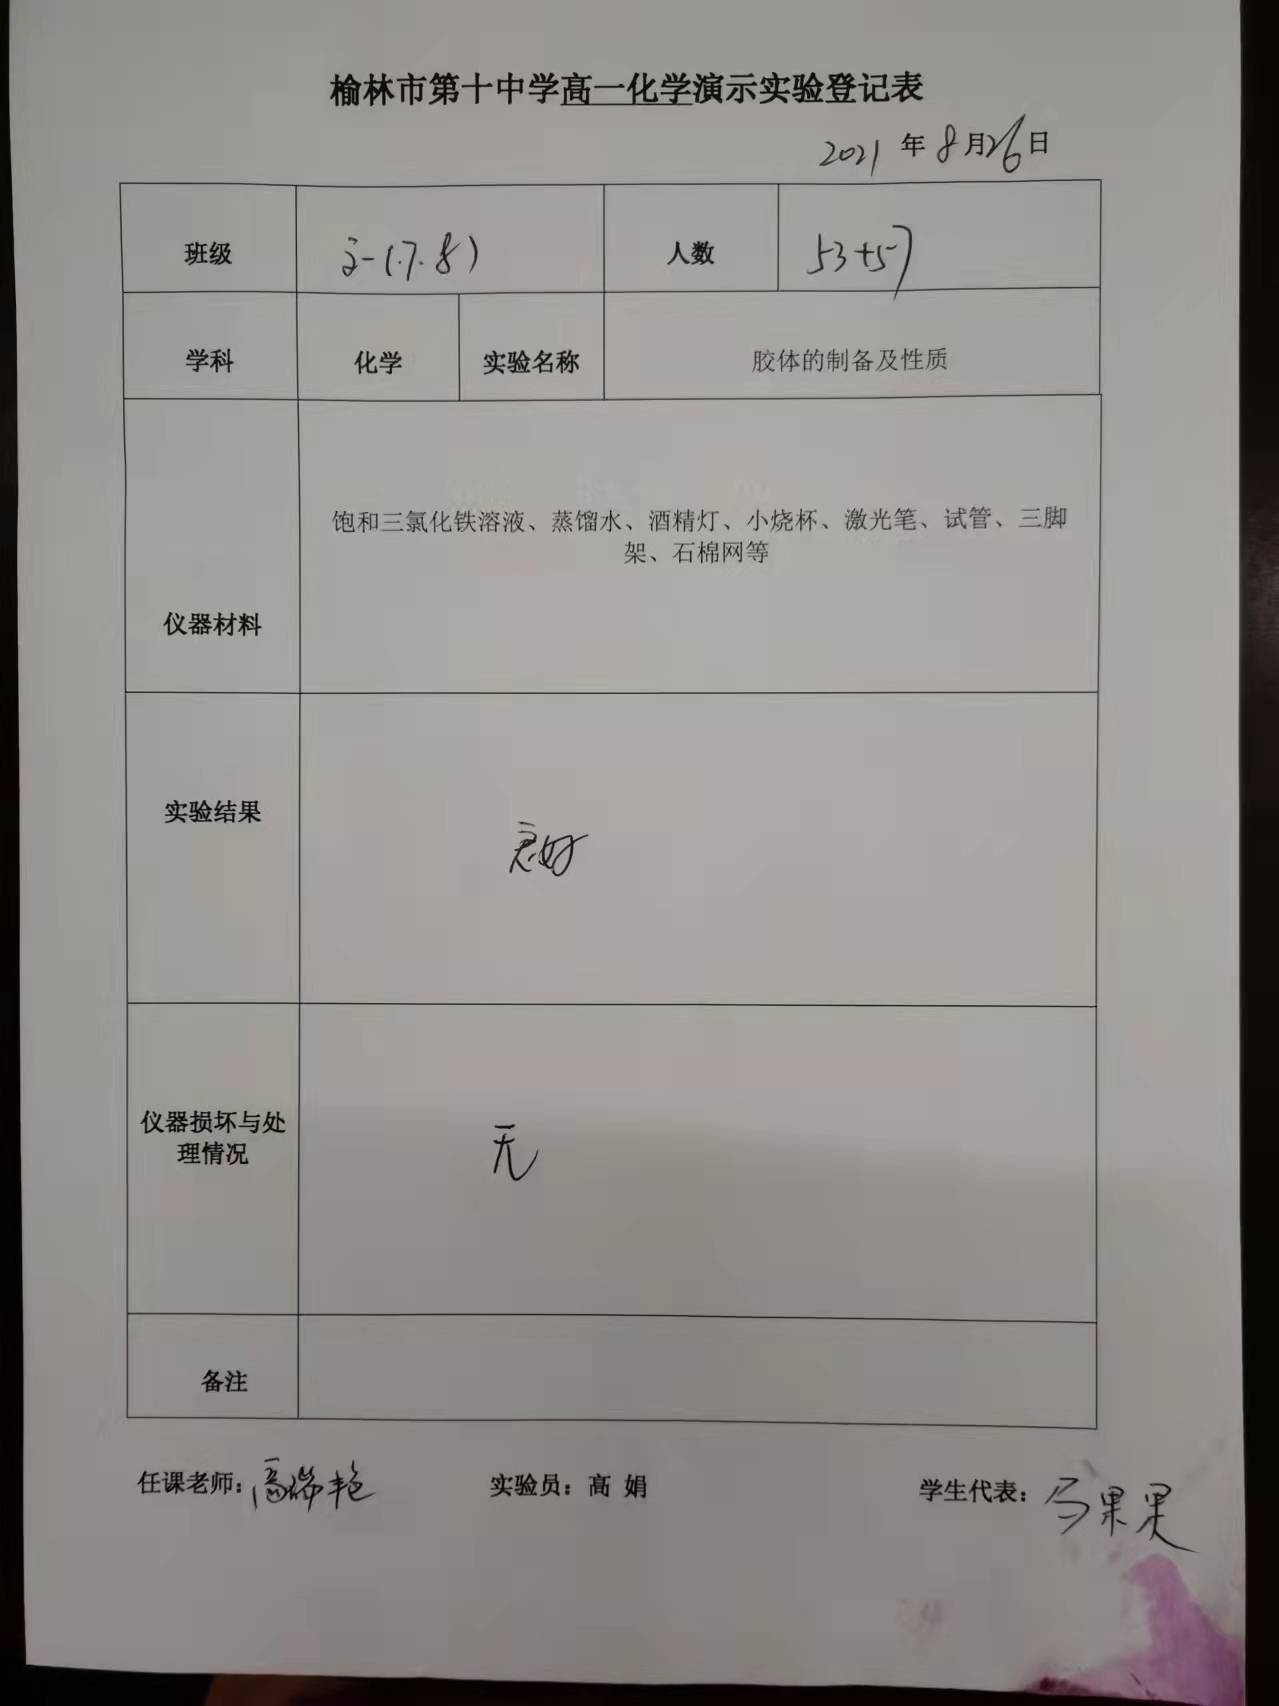 榆林市第十中学高一化学演示实验登记表
2021 年 8 月 26 日
班级 高一(7.8) 人数 53+57
学科 化学 实验名称 胶体的制备及性质
饱和三氯化铁溶液、蒸馏水、酒精灯、小烧杯、激光笔、试管、三脚
架、石棉网等
仪器材料
实验结果
良好
仪器损坏与处
理情况
无
备注
任课老师：高瑞艳 实验员：高 娟 学生代表：马果果